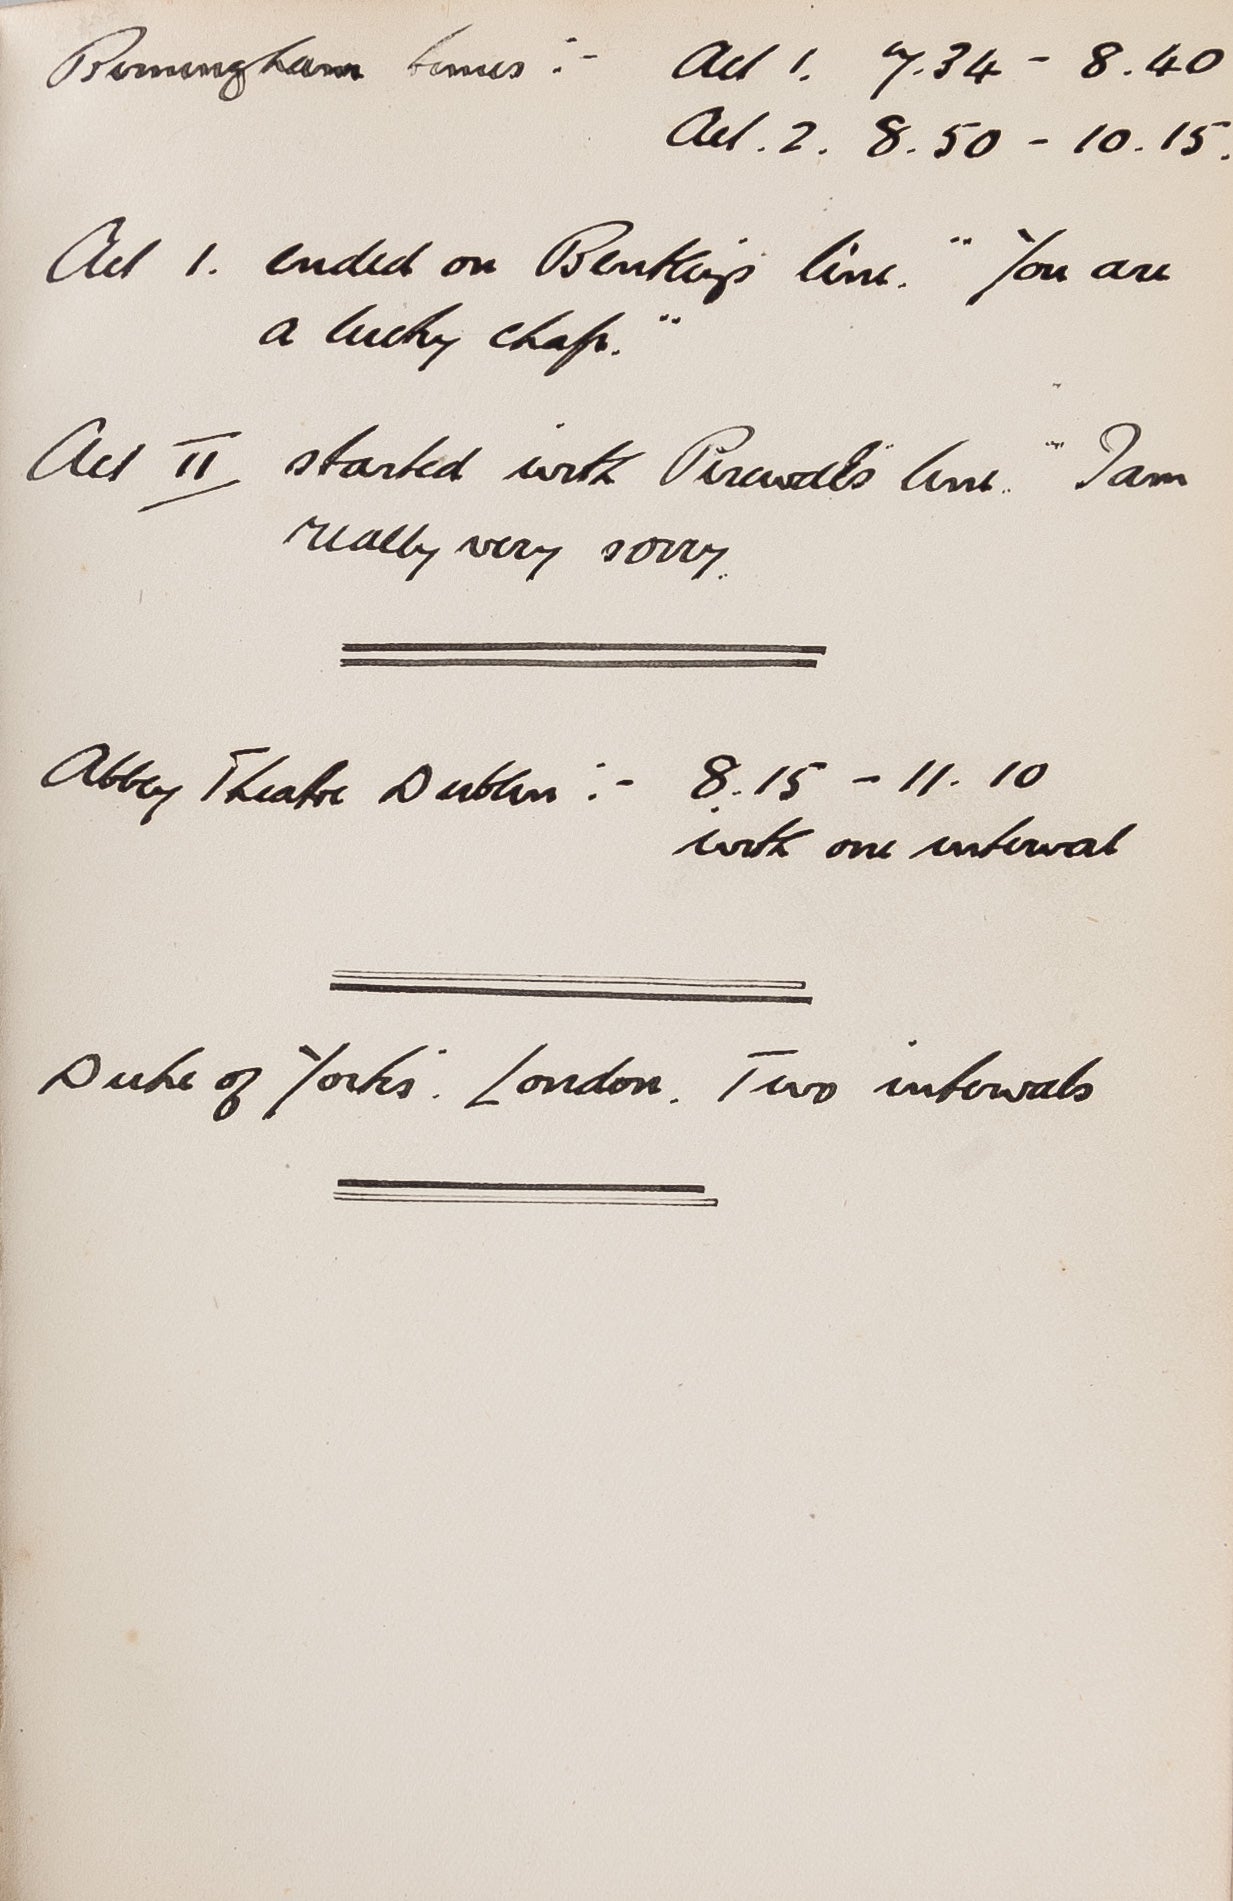 Birmingham times :- Act 1. 7.34 - 8.40
Act. 2. 8.50 - 10.15.
Act 1. ended on line. "You are
a lucky chap."
Act II started with line. "I am
really very sorry.
Abbey Theatre Dublin :- 8.15 - 11.10
with one interval
Duke of York's. London. Two intervals